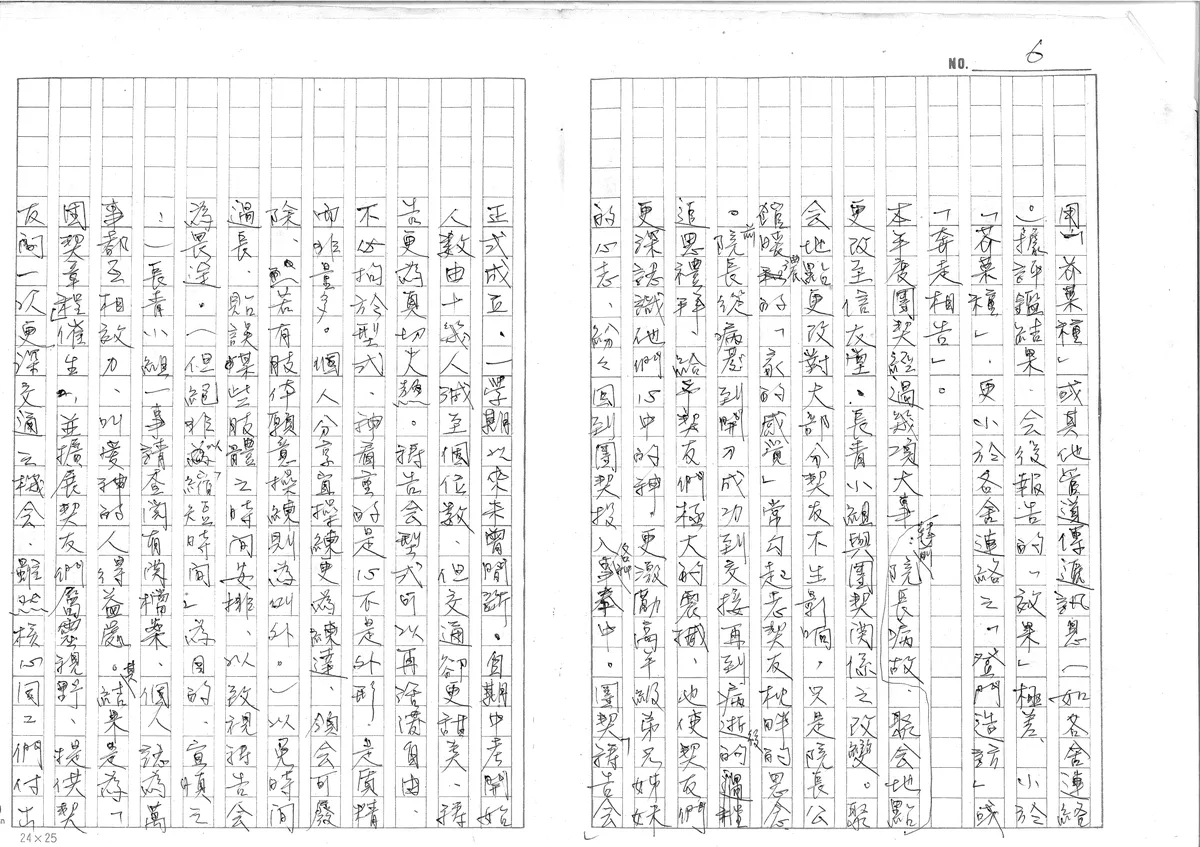 NO. 6
團「芥菜種」或其他管道傳遞訊息(如各舍連絡
)據評鑑結果.會後報告的「效果」極差、小於
「芥菜種」.更小於各舍連絡之「登門造訪」或
「奔走相告」。
本年度團契經過幾項大事:院長病故、聚會地點
更改至信友堂.長青小組與團契関係之改變。聚
會地點更改對大部分契友不生影响,只是院長公
館的「家的感覺」常勾起老契友枕畔的思念
。院長從病發到開刀成功到交接再到病逝的過程
追思禮拜、給契友們極大的震撼、也使契友們
更深認識他們心中的神。更激勵高年級弟兄姊妹
的心志、紛々回到團契投入事奉中。團契禱告會
正式成立.一學期以來未曾間斷。自期中考開始
人數由十幾人減至個位數、但交通卻更甜美、禱
告更為真切火熱。禱告會型式可以再活潑自由、
不必拘於型式、神看重的是心不是外形、是質精
而非量多。個人分享宜操練更為練達、領會可廢
除、若有肢体願意操練則為例外。)以免時間
過長、貽誤某些肢體之時间安排、以致視禱告會
為畏途。(但絕非以「縮短時间」為目的、宜順之
:)長青小組一事請查閱有関檔案、個人認為萬
事都互相效力、叫愛神的人得益處。其結果是為「
團契章程催生」、並擴展契友們屬靈視野、提供契
友間一次更深交通之機會.雖然核心同工們付出
24×25